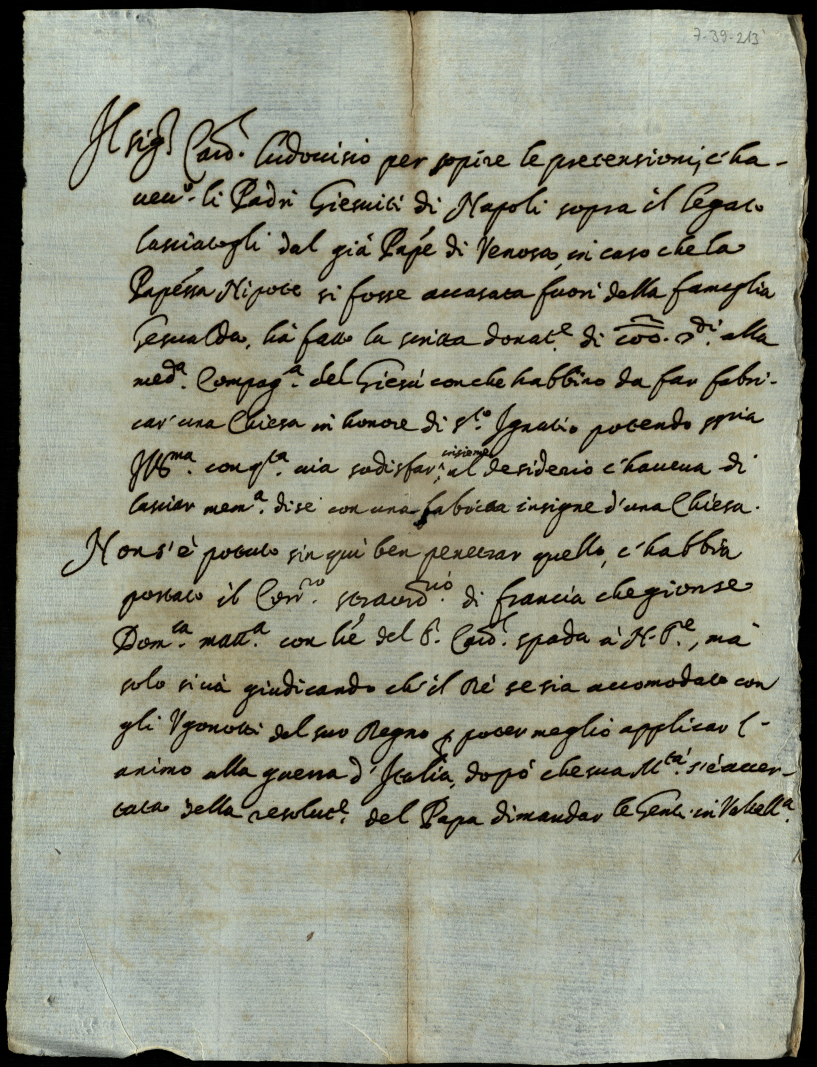 7-39-213
Il sig.r Card.l ludouisio per sopire le pretensioni, c'ha-
ueu.o li Padri Giesuiti di Napoli sopra il legato
lasciatogli dal già Pnpe di Venosa, in caso che la
Pnpéssa Nipote si fosse accasata fuori della fameglia
Gesualda, hà fatto la scritta donat.e di di alla
med.a Compag.a del Giesù con che habbino da far fabri-
car' una Chiesa in honore di s.to Ignatio potendo
Ill.ma con q.ta uia sodisfar' insieme al desiderio c'haueua di
lasciar mem.a di se con una fabrica insigne d'una Chiesa.
Non s'è potuto sin qui ben penetrar quello, c'habbia
portato il Corr.ro straord.rio di francia che gionse
Dom.ca matt.a con l're del s.r Card.l spada à N. S.re, mà
solo si uà giudicando che il Ré se sia accomodato con
gli Vgonotti del suo Regno p poter meglio applicar l'-
animo alla guerra d'Italia, dopò che sua M.tà s'è accer-
tata della resolut.e del Papa di mandar le Genti in Valtell.a